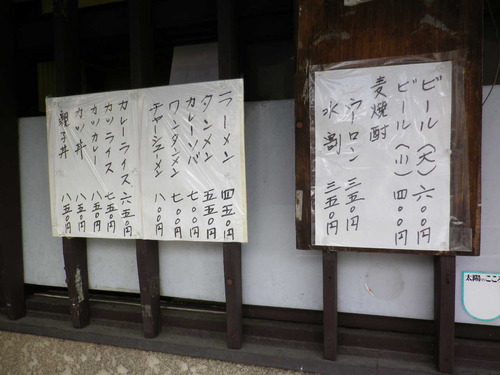 ビール(大) 六〇〇円
ビール(小) 四〇〇円
麦焼酎
ウーロン 三五〇円
水割 三五〇円
ラーメン 四五〇円
タンメン 五五〇円
カレーソバ 七〇〇円
ワンタンメン 七〇〇円
チャーシューメン 八〇〇円
カレーライス 六五〇円
カツライス 七五〇円
カツカレー 八五〇円
カツ丼 八五〇円
親子丼 八五〇円
太陽のここ